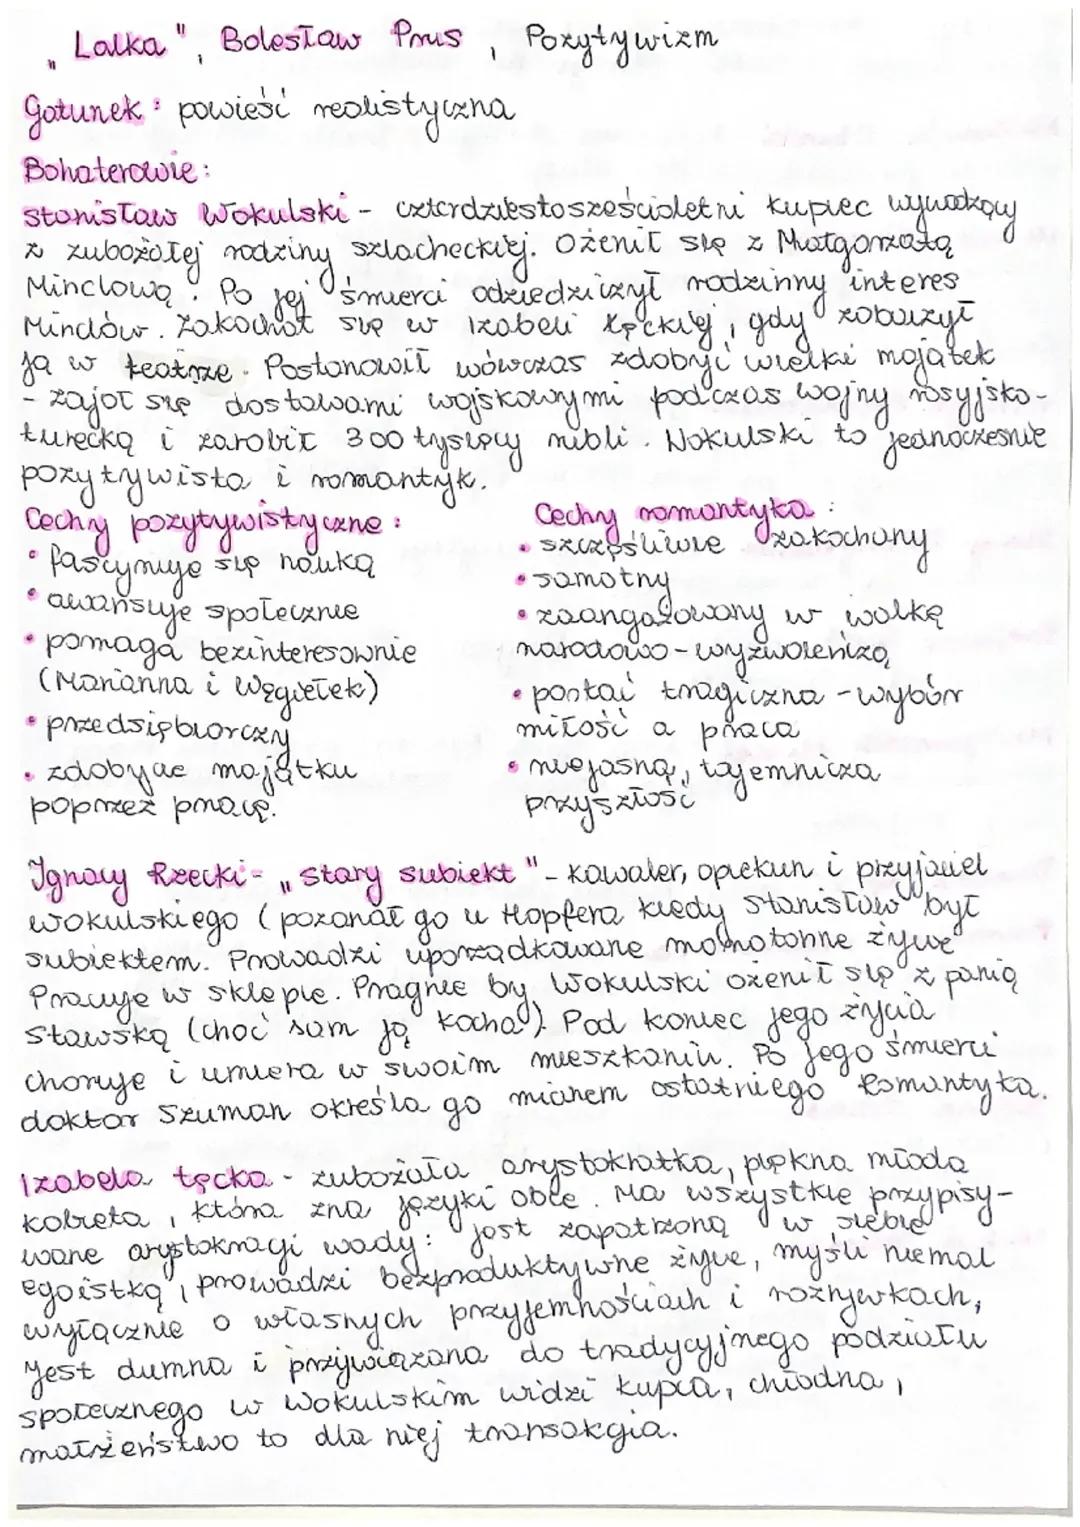 „Lalka", Bolesław Prus, Pozytywizm
Gatunek: powieść realistyczna
Bohaterowie:
Stanisław Wokulski - czterdziestosześcioletni kupiec wywodzący
z zubożałej rodziny szlacheckiej. Ożenił się z Małgorzatą
Minclową. Po jej śmierci odziedziczył rodzinny interes
Minclów. Zakochał się w Izabeli Łęckiej, gdy zobaczył
ją w teatrze. Postanowił wówczas zdobyć wielki majątek
- zajął się dostawami wojskowymi podczas wojny rosyjsko-
turecką i zarobił 300 tysięcy rubli. Wokulski to jednocześnie
pozytywista i romantyk.
Cechy pozytywistyczne:
• fascynuje się nauką
• awansuje społecznie
• pomaga bezinteresownie
(Marianna i Węgiełek)
• przedsiębiorczy
• zdobycie majątku
poprzez pracę.
Cechy romantyka:
• szczęśliwie zakochany
• samotny
• zaangażowany w walkę
narodowo-wyzwoleńczą
• postać tragiczna - wybór
miłość a praca
• niejasną, tajemnicza
przyszłość
Ignacy Rzecki - „stary subiekt" - kawaler, opiekun i przyjaciel
Wokulskiego (poznał go u Hopfera kiedy Stanisław był
subiektem. Prowadzi uporządkowane monotonne życie
Pracuje w sklepie. Pragnie by Wokulski ożenił się z panią
Stawską (choć sam ją kocha). Pod koniec jego życia
choruje i umiera w swoim mieszkaniu. Po jego śmierci
doktor Szuman określa go mianem ostatniego Romantyka.
Izabela Łęcka - zubożała arystokratka, piękna młoda
kobieta, która zna języki obce. Ma wszystkie przypisy-
wane arystokracji wady: jest zapatrzoną w siebie
egoistką, prowadzi bezproduktywne życie, myśli niemal
wyłącznie o własnych przyjemnościach i rozrywkach,
Jest dumna i przywiązana do tradycyjnego podziału
społecznego w Wokulskim widzi kupca, chłodna,
małżeństwo to dla niej transakcja.